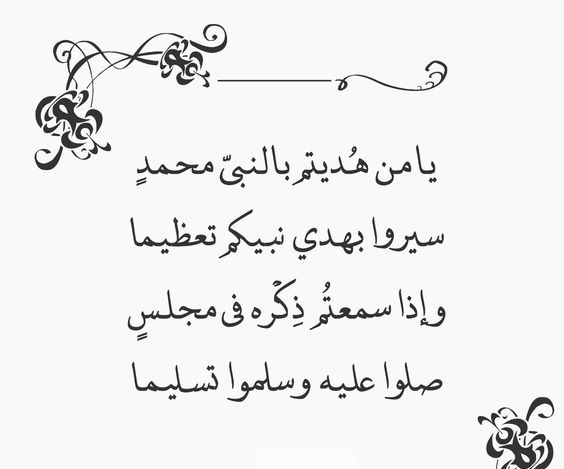 يا من هُديتم بالنبيّ محمدٍ
سيروا بهدي نبيكم تعظيما
وإذا سمعتُم ذِكْره فى مجلسٍ
صلوا عليه وسلموا تسليما